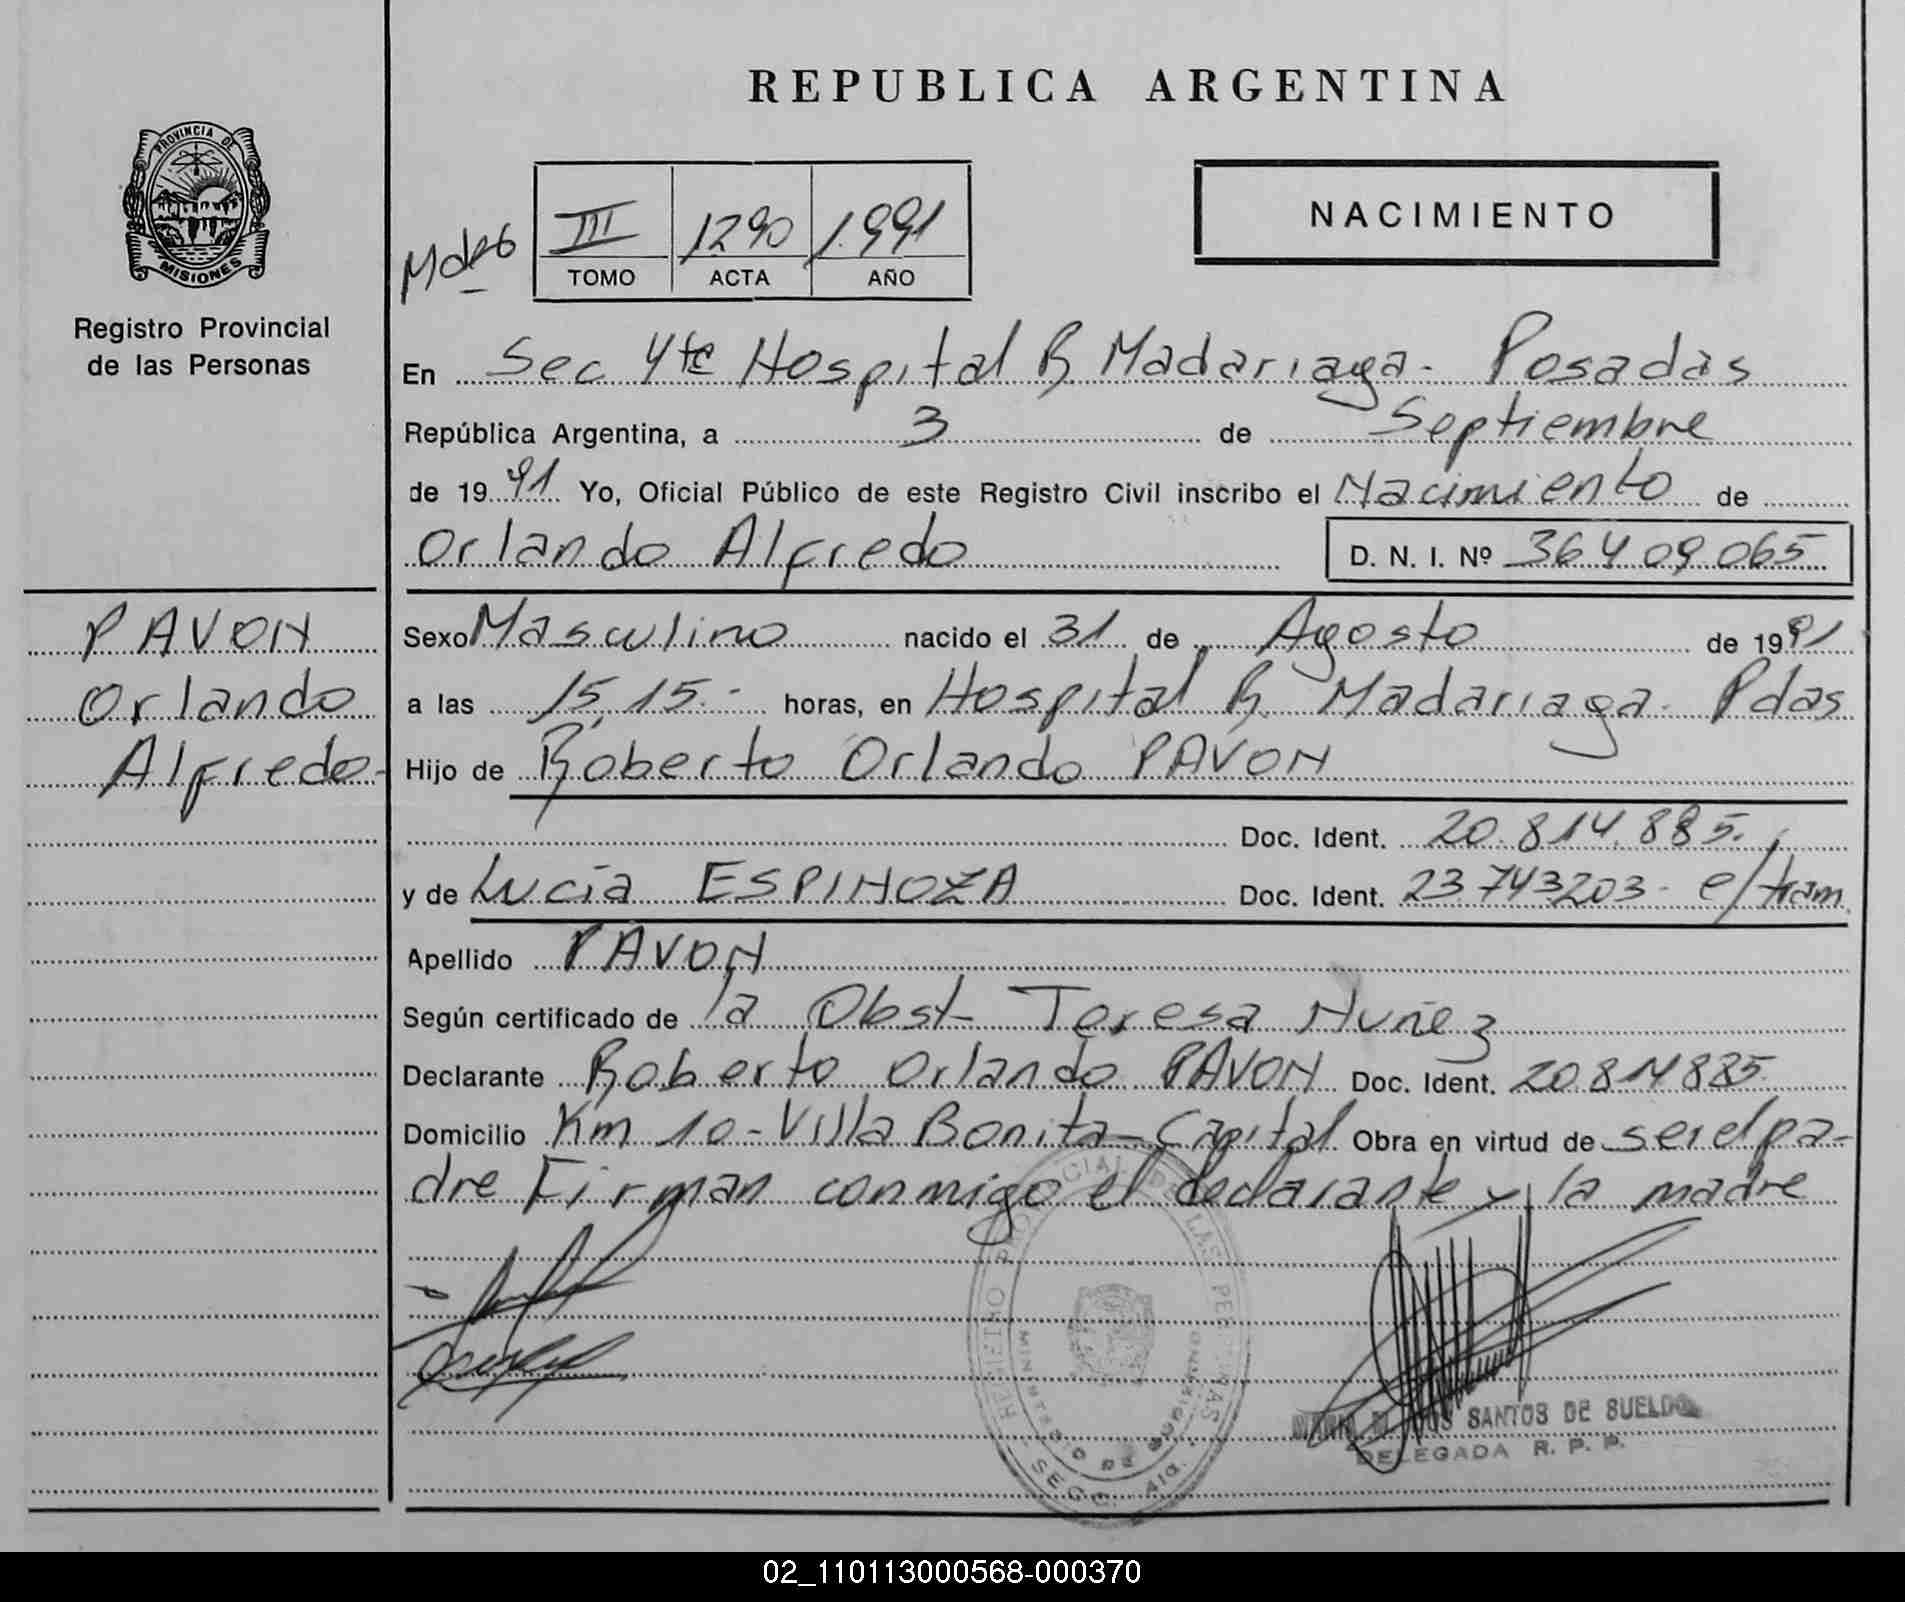 REPUBLICA ARGENTINA
PROVINCIA DE
MISIONES
Registro Provincial
de las Personas
III 1290 1.991
TOMO ACTA AÑO
NACIMIENTO
En Sec 4ta Hospital R Madariaga - Posadas
República Argentina, a 3 de Septiembre
de 19 91 Yo, Oficial Público de este Registro Civil inscribo el Nacimiento de
Orlando Alfredo D. N. I. Nº 36409065
PAVON
Orlando
Alfredo-
Sexo Masculino nacido el 31 de Agosto de 1991
a las 15,15.- horas, en Hospital R. Madariaga - Pdas
Hijo de Roberto Orlando PAVON
Doc. Ident. 20.814.885.
y de Lucía ESPINOZA Doc. Ident. 23.743203 - e/tram.
Apellido PAVON
Según certificado de la Obst- Teresa Nuñez
Declarante Roberto Orlando PAVON Doc. Ident. 20814885
Domicilio Km 10 - Villa Bonita - Capital Obra en virtud de ser el pa-
dre Firman conmigo el declarante y la madre
REGISTRO PROVINCIAL DE LAS PERSONAS
MINISTERIO DE GOBIERNO
SANTOS DE SUELDO
DELEGADA R. P. P.
02_110113000568-000370